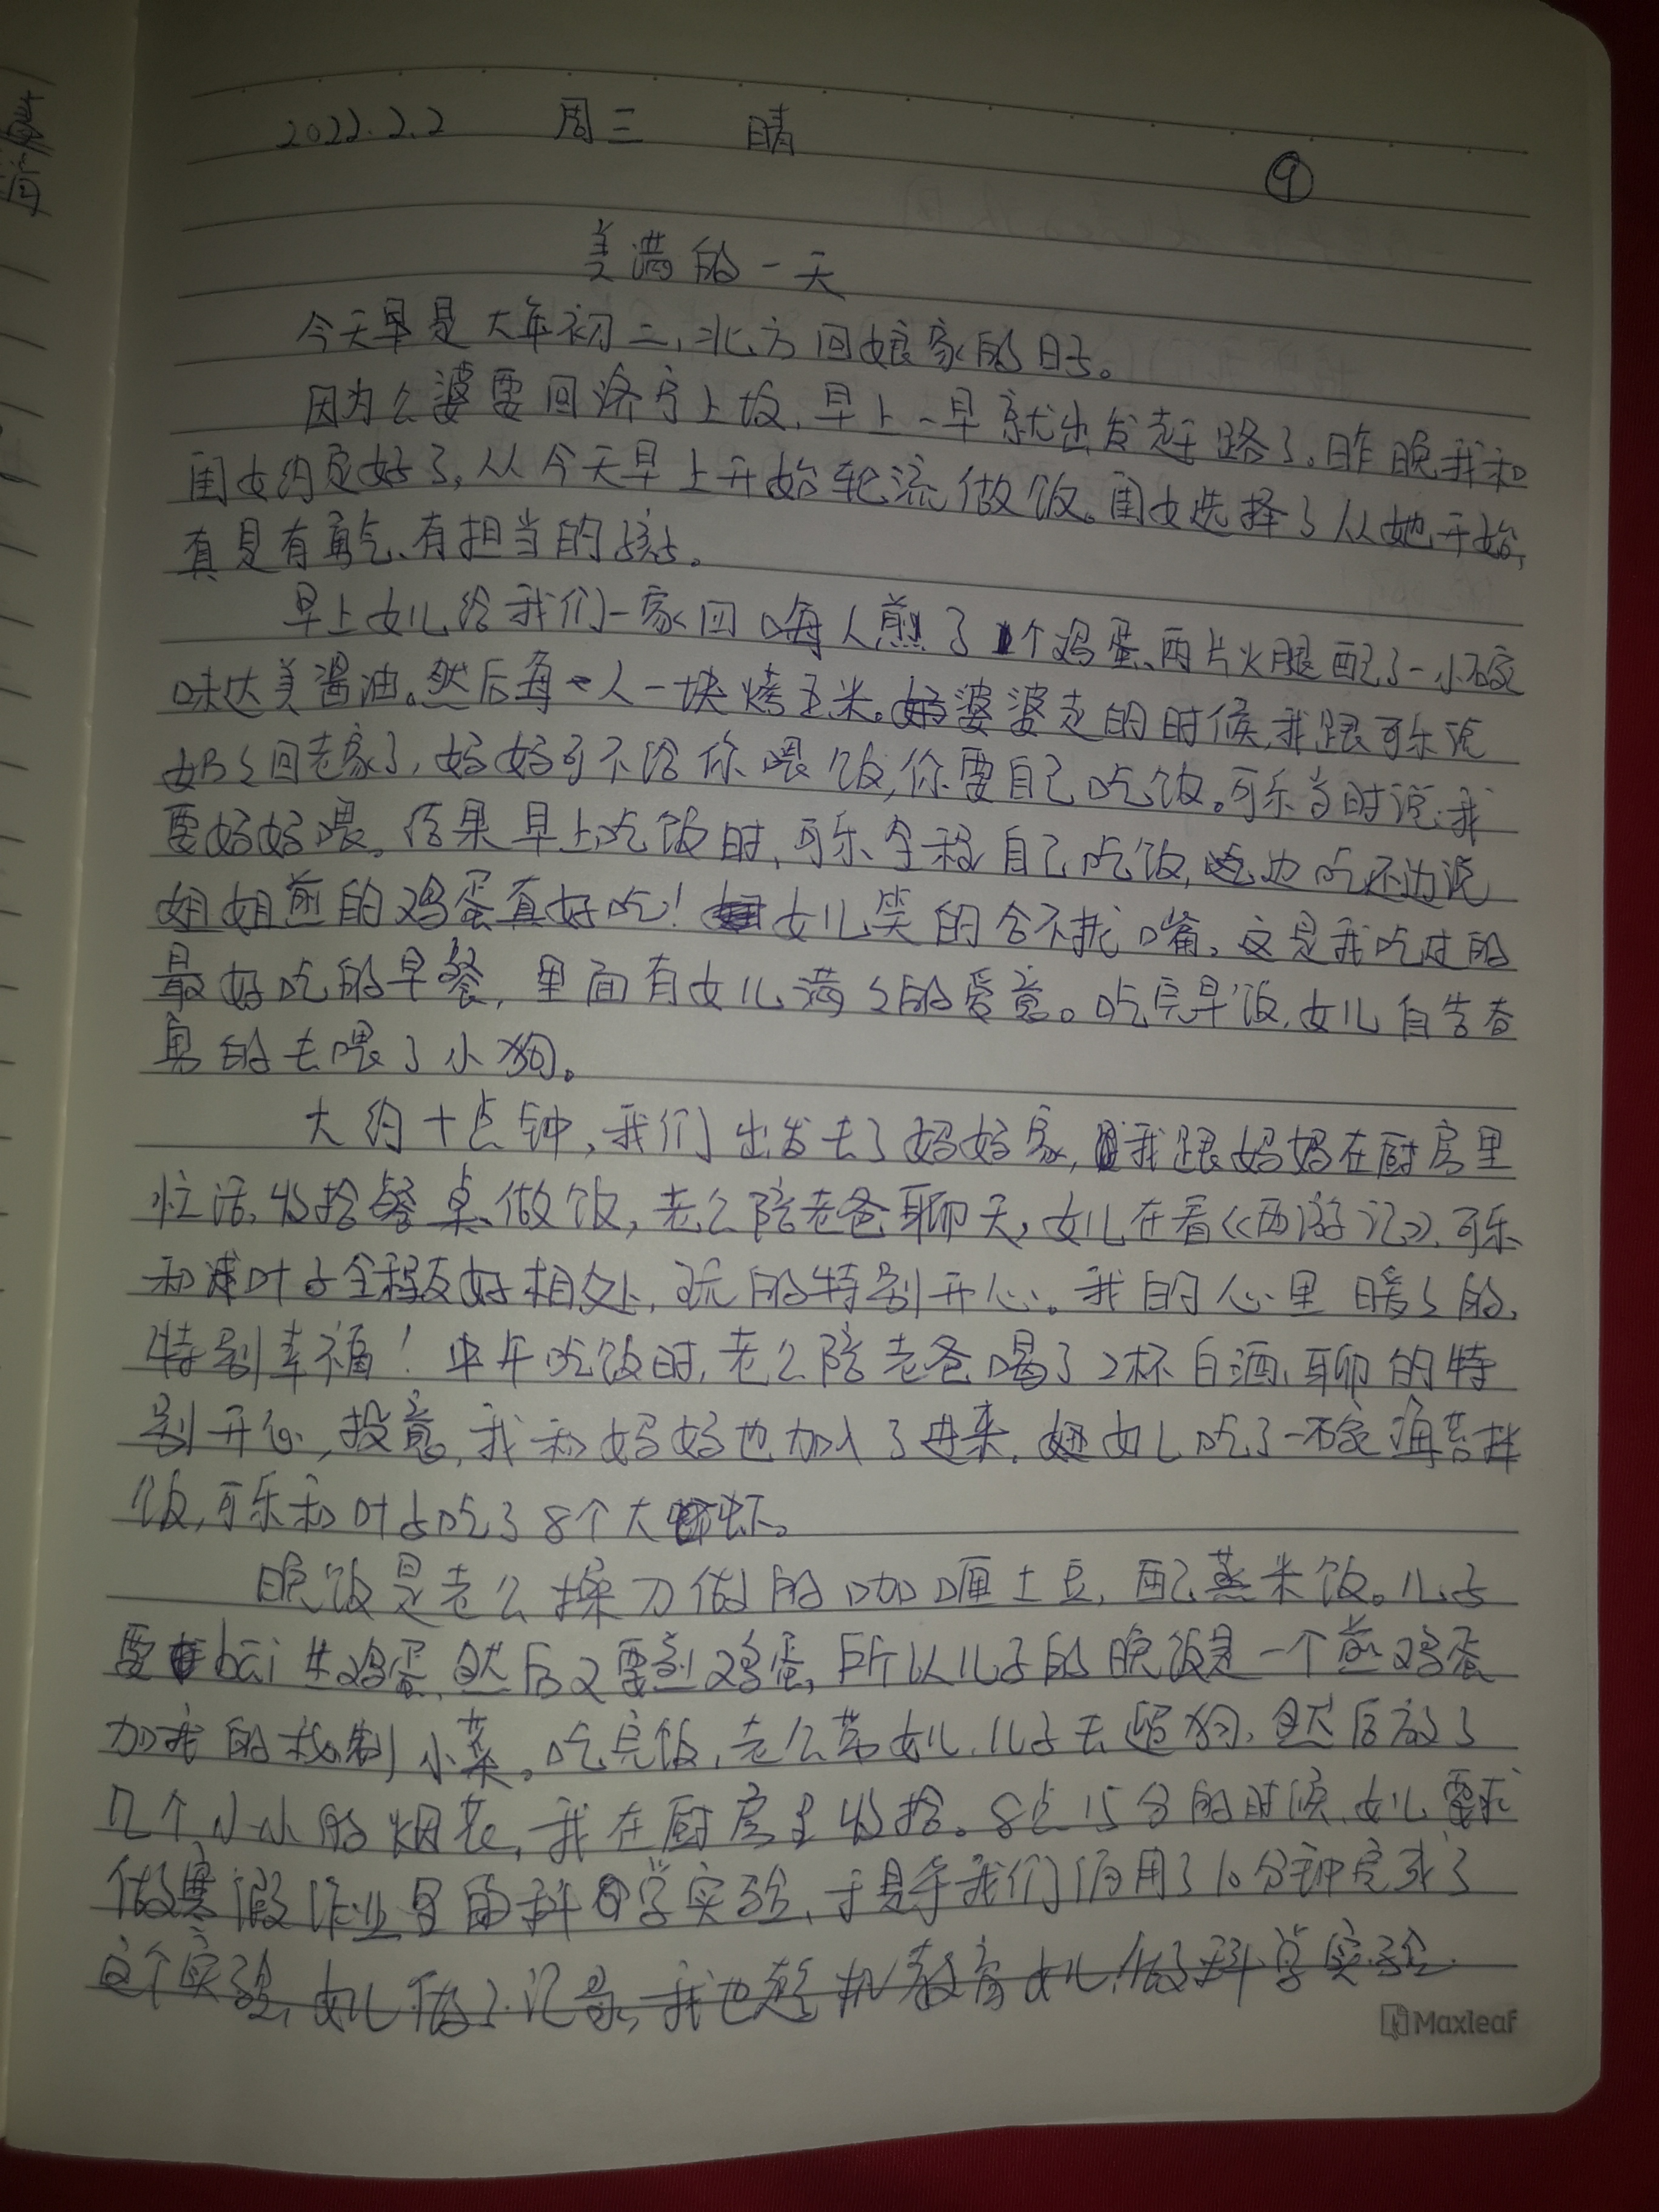 2022.2.2 周三 晴
⑨
美满的一天
今天是大年初二,北方回娘家的日子。
因为公婆要回济宁上坟,早上一早就出发赶路了。昨晚我和
闺女约定好了,从今天早上开始轮流做饭。闺女选择了从她开始,
真是有勇气、有担当的孩子。
早上女儿给我们一家四口每人煎了1个鸡蛋、两片火腿配了一小碗
味达美酱油。然后每人一块烤玉米。婆婆走的时候,我跟可乐说
奶奶回老家了,妈妈可不给你喂饭,你要自己吃饭。可乐当时说:我
要妈妈喂。结果早上吃饭时,可乐全程自己吃饭,边吃还边说
姐姐煎的鸡蛋真好吃!女儿笑的合不拢嘴。这是我吃过的
最好吃的早餐,里面有女儿满满的爱意。吃完早饭,女儿自告奋
勇的去喂了小狗。
大约十点钟,我们出发去了妈妈家,我跟妈妈在厨房里
忙活,收拾餐桌、做饭,老公陪老爸聊天,女儿在看《西游记》,可乐
和叶子全程友好相处,玩的特别开心。我的心里暖暖的,
特别幸福!中午吃饭时,老公陪老爸喝了2杯白酒,聊的特
别开心,投意,我和妈妈也加入了进来,女儿吃了一碗海苔拌
饭,可乐和叶子吃了8个大虾。
晚饭是老公操刀做的咖喱土豆,配蒸米饭。儿子
要bai生鸡蛋,然后又要煎鸡蛋,所以儿子的晚饭是一个煎鸡蛋
加我的秘制小菜。吃完饭,老公带女儿、儿子去遛狗,然后放了
几个小小的烟花,我在厨房里收拾。8点15分的时候,女儿要求
做寒假作业里的科学实验,于是乎我们俩用了10分钟完成了
这个实验,女儿做了记录,我也趁机教育女儿,做科学实验
Maxleaf